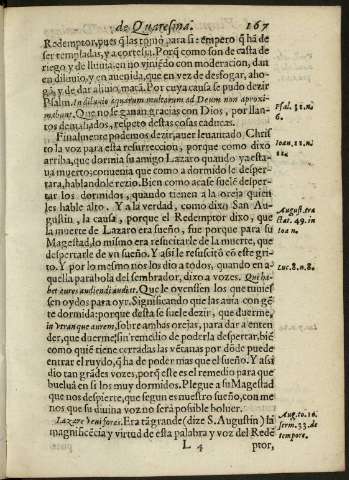 de Quaresma. 167
Redemptor, pues q̃ las tomò para si: empero q̃ hã de
ser templadas, y a cortesia. Porq̃ como son de casta de
riego y de lluuia, en no viniẽdo con moderacion, dan
en diluuio, y en auenida, que en vez de desfogar, aho-
gã, y de dar aliuio, matã. Por cuya causa se pudo dezir
Psalm. In diluuio aquarum multarum ad Deum non aproxi-
mabunt. Que no se ganan gracias con Dios, por llan-
tos demasiados, respeto destas cosas caducas.
Psal. 31. n.
6.
Finalmente podemos dezir, auer leuantado Chris-
to la voz para esta resurreccion, porque como dixo
arriba, que dormia su amigo Lazaro quando ya esta-
ua muerto; conuenia que como a dormido le desper-
tara, hablandole rezio. Bien como acaẽ suelẽ desper-
tar los dormidos, quando tienen a la oreja quien
les hable alto. Y a la verdad, como dixo San Au-
gustin, la causa, porque el Redemptor dixo, que
la muerte de Lazaro era sueño, fue porque para su
Magestad, lo mismo era resucitarle de la muerte, que
despertarle de vn sueño. Y assi le resuscitò cõ este gri-
to. Y por lo mesmo nos los dio a todos, quando en a-
quella parabola del sembrador, dixo a vozes. Qui ha-
bet aures audiendi audiat. Que le oyessen los que tuuies-
sen oydos para oyr. Significando que las auia con gẽ-
te dormida: porque desta se suele dezir, que duerme,
in vtranque aurem, sobre ambas orejas, para dar a enten-
der, que duerme, sin remedio de poderla despertar, biẽ
como quiẽ tiene cerradas las vẽtanas por dõde puede
entrar el ruydo, q̃ ha de poder mas que el sueño. Y assi
dio tan grãdes vozes, porq̃ este es el remedio para que
bueluã en si los muy dormidos. Plegue a su Magestad
que nos despierte, que segun es nuestro sueño, con me
nos que su diuina voz no serà posible boluer.
Ioan. 11. n.
11.
August. tra
ctat. 49. in
Ioan.
Luc. 8. n. 8.
Lazare veni foras. Era tã grande (dize S. Augustin) la
magnificẽcia y virtud de esta palabra y voz del Redẽ
Aug. to. 10.
serm. 33. de
tempore.
L 4 ptor,